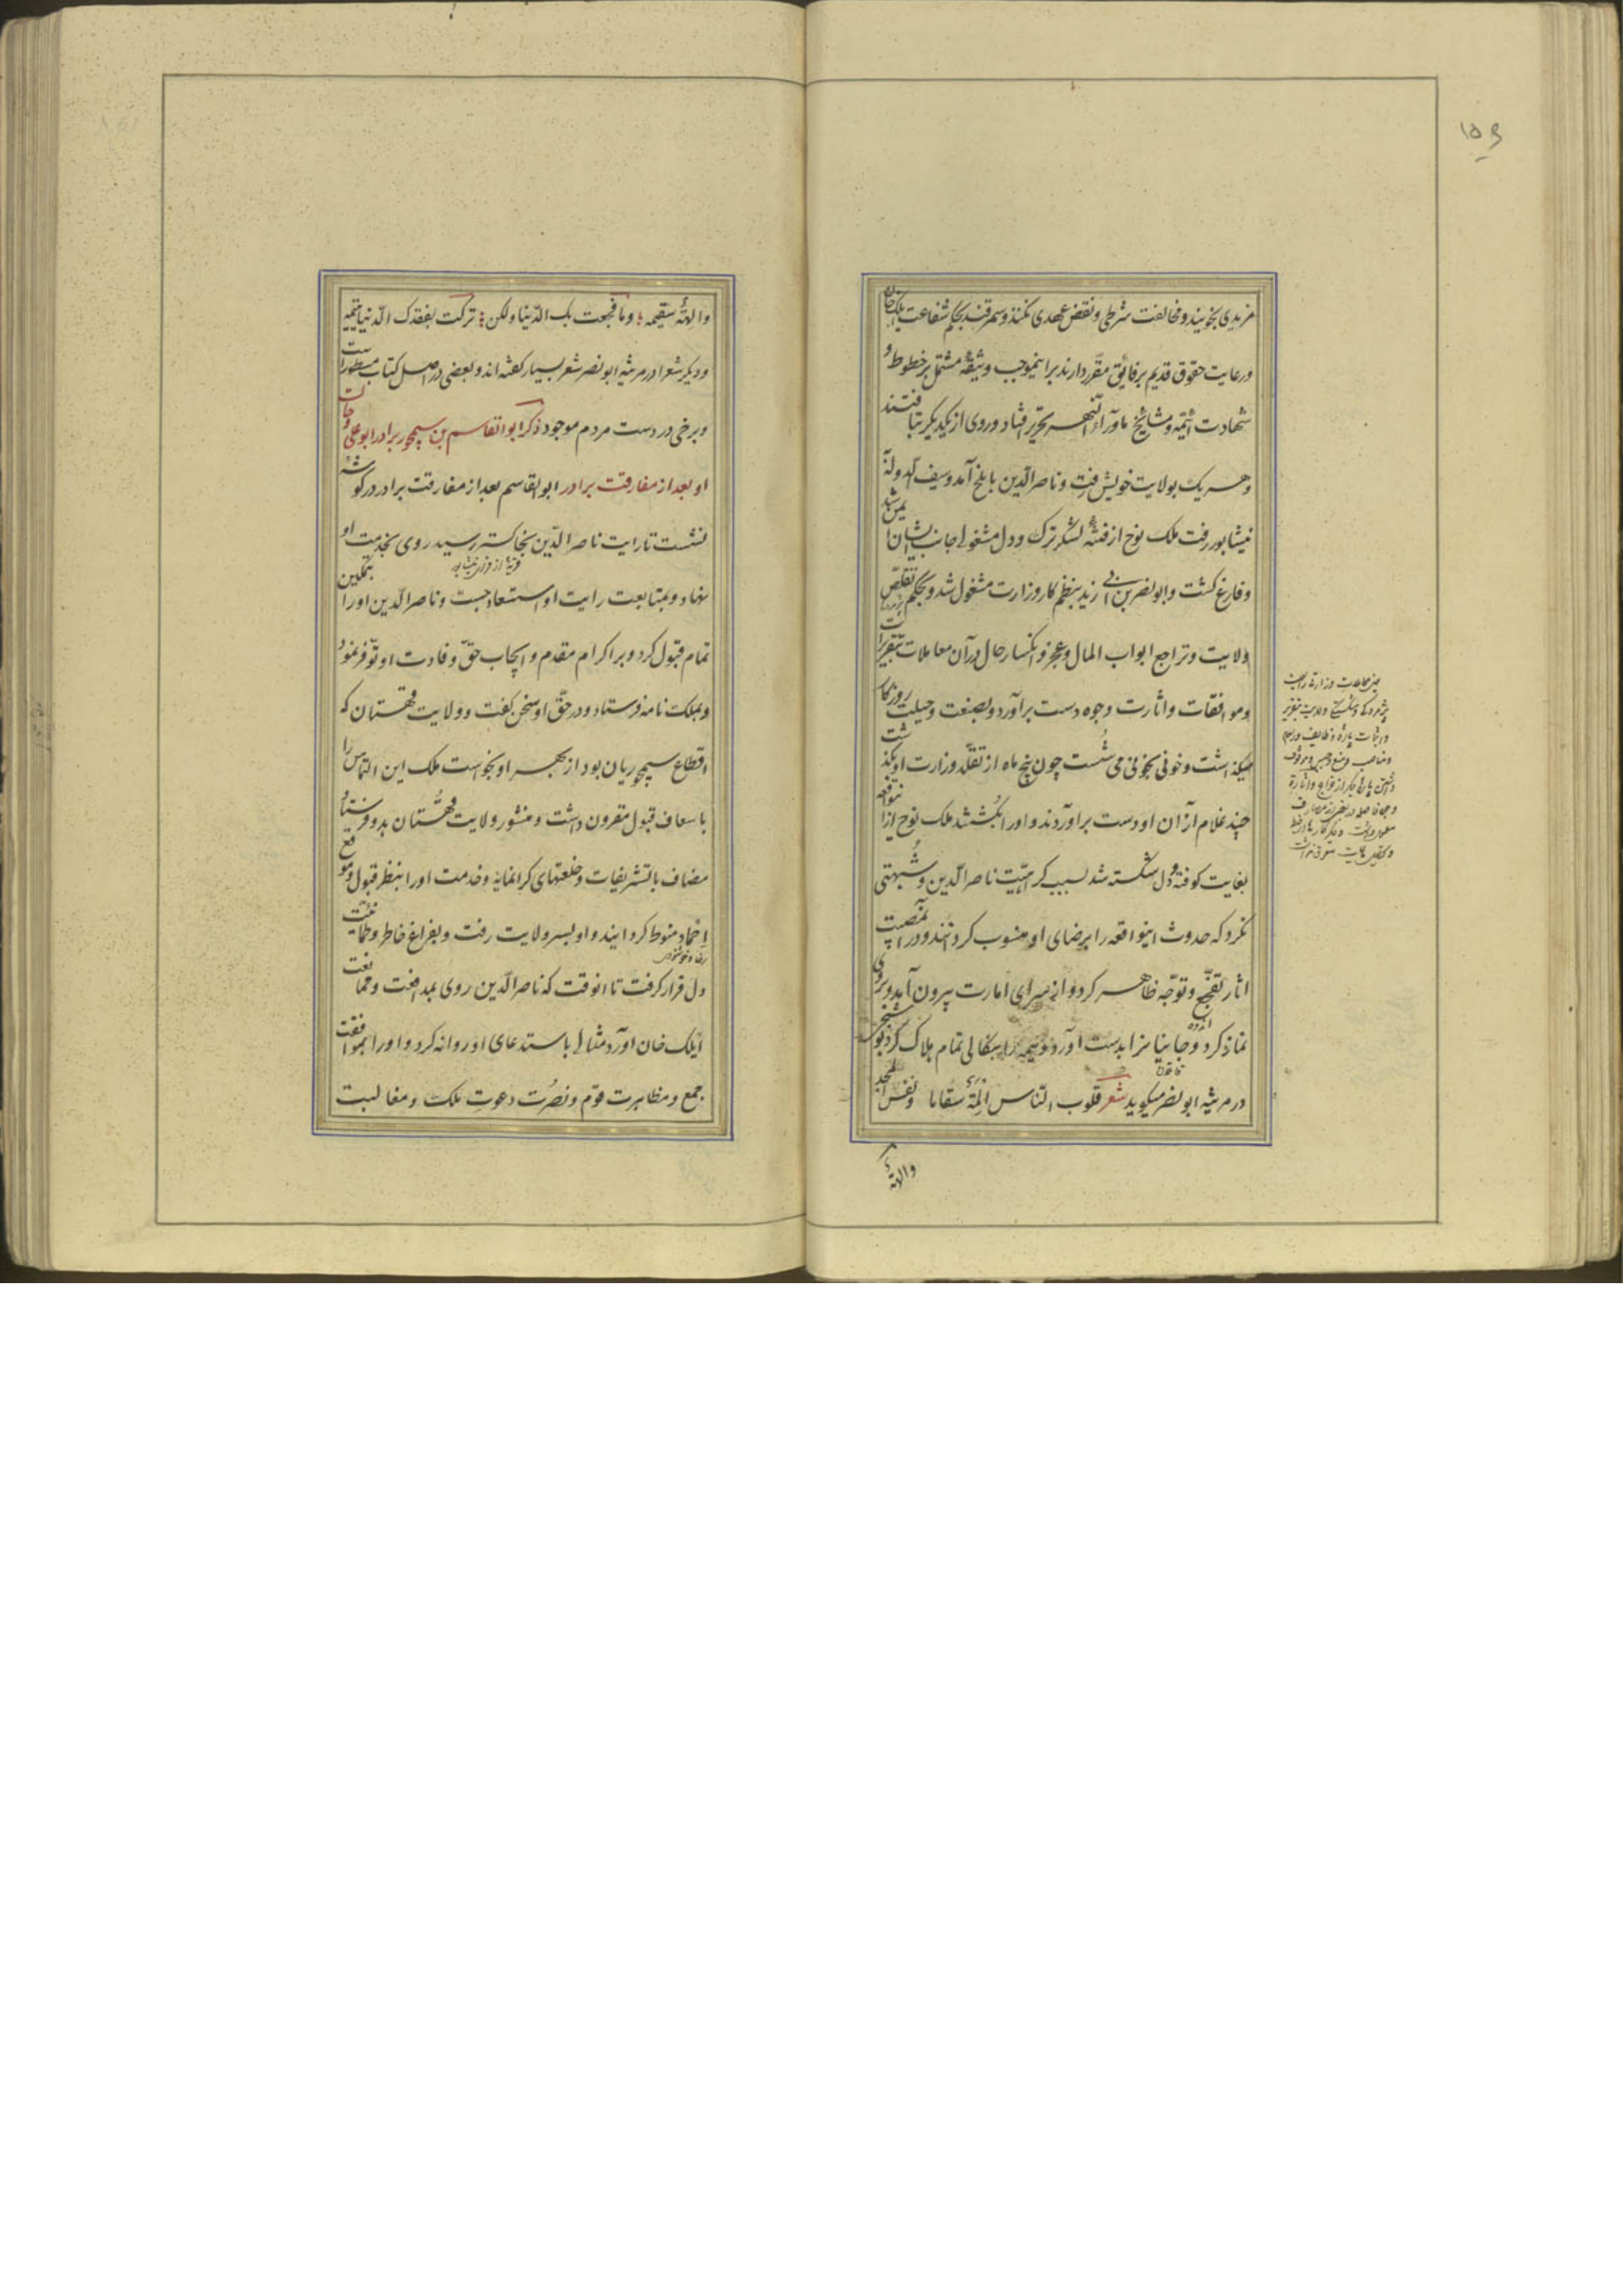 ۱۵۹
مزیدی نجویند و مخالفت شرطی و نقض عهدی نکنند و سمرقند بحکم شفاعت ایلک خان
و رعایت حقوق قدیم بر فایق مقرر دارند بر اینموجب وثیقهٔ مشتمل بر خطوط و
شهادت ائمه و مشایخ ماورآء النهر بتحریر افتاد و روی از یکدیگر بتافتند
و هر یک بولایت خویش رفت و ناصر الدین با بلخ آمد و سیف الدوله
نیشابور رفت ملک نوح از فتنهٔ لشکر ترک و دل مشغولی جانب ایشان ایمن شد
و فارغ گشت و ابو نصر بن ابی زید بنظم کار وزارت مشغول شد و بحکم تقلص
ولایت و تراجع ابواب المال و عجز و انکسار حال در آن معاملات بتقریرات
و موافقات و اثارت وجوه دست برآورد و بصنعت و حیلت روزگار
میگذاشت و خونی بخونی می شست چون پنج ماه از تقلد وزارت او بگذشت
چند غلام از آن او دست برآوردند و او را بکشتند ملک نوح ازین واقعه
بغایت کوفته و دل شکسته شد بسبب کراهیت ناصر الدین و شبهتی
نکرد که حدوث اینواقعه را برضای او منسوب کردانند و در آن مصیبت
اثار تفجع و توجه ظاهر کرد و از سرای امارت بیرون آمد و بر وی
نماز کرد و جانیانرا بدست آورد و همه را بنکالی تمام هلاک کرد
در مرثیه ابو نصر میگوید شعر قلوب الناس المة سقاما و نفس المجد
والهة
والهةٔ سقیمه وما فجعت بک الدنیا ولکن ترکت بفقدک الدنیا یتیمه
و دیگر شعرا در مرثیه ابو نصر شعر بسیار گفته اند و بعضی در اصل کتاب مسطور است
و برخی در دست مردم موجود ذکر ابو القاسم بن سیمجور برادر ابو علی و حالت
او بعد از مفارقت برادر ابو القاسم بعد از مفارقت برادر در گوشهٔ
بنشست تا رایت ناصر الدین بخاکستر رسید روی بخدمت او
قریهٔ از قرای نیشابور
نهاد و بمتابعت رایت او استسعاد جست و ناصر الدین او را بتمکین
تمام قبول کرد و بر اکرام مقدم و ایجاب حق وفادت او توفر نمود
و بملک نامه فرستاد و در حق او سخن گفت و ولایت قهستان که
اقطاع سیمجوریان بود از بهر او بخواست ملک این التماس را
باسعاف قبول مقرون داشت و منشور ولایت قهستان بدو فرستاد
مضاف با تشریفات و خلعتهای گرانمایه و خدمت او را بنظر قبول و موقع
احماد منوط گردانید و او بسر ولایت رفت و بفراغ خاطر و طمانینت
دل قرار گرفت تا انوقت که ناصر الدین روی بمدافعت و ممانعت
ایلک خان آورد مثالی باستدعای او روانه کرد و او را بموافقت
جمع و مظاهرت قوم و نصرت دعوت ملک و مغالبت